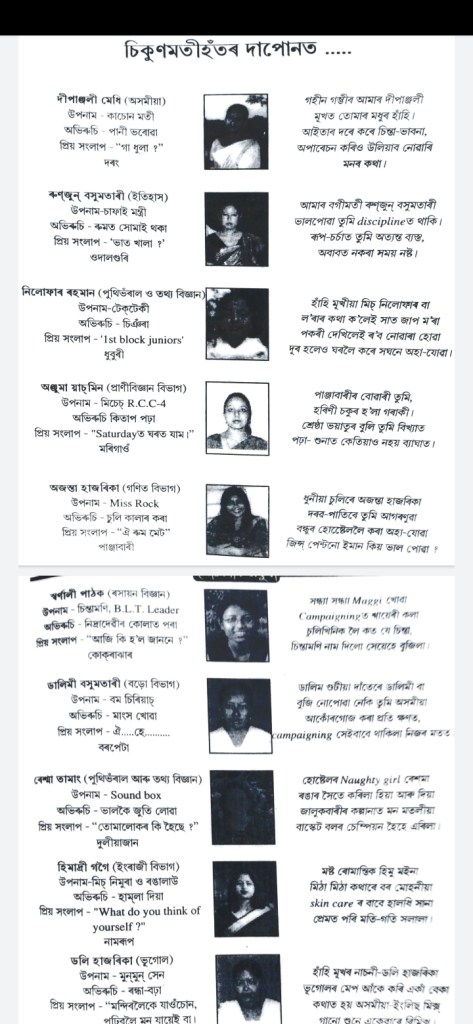 চিকুণমতীহঁতৰ দাপোনত .....
দীপাঞ্জলী মেধি (অসমীয়া)
উপনাম - কাচোন মতী
অভিৰুচি - পানী ভৰোৱা
প্ৰিয় সংলাপ - “গা ধুলা ?”
দৰং
গহীন গম্ভীৰ আমাৰ দীপাঞ্জলী
মুখত তোমাৰ মধুৰ হাঁহি।
আইতাৰ দৰে কৰে চিন্তা-ভাবনা,
অপাৰেচন কৰিও উলিয়াব নোৱাৰি
মনৰ কথা।
ৰুণ্জুন্ বসুমতাৰী (ইতিহাস)
উপনাম-চাফাই মন্ত্ৰী
অভিৰুচি - ৰুমত সোমাই থকা
প্ৰিয় সংলাপ - 'ভাত খালা ?'
ওদালগুৰি
আমাৰ বগীমতী ৰুণ্জুন্ বসুমতাৰী
ভালপোৱা তুমি disciplineত থাকি।
ৰূপ-চৰ্চাত তুমি অত্যন্ত ব্যস্ত,
অবাবত নকৰা সময় নষ্ট।
নিলোফাৰ ৰহমান (পুথিভঁৰাল ও তথ্য বিজ্ঞান)
উপনাম-টেক্টেকী
অভিৰুচি - চিঞঁৰা
প্ৰিয় সংলাপ - '1st block juniors'
ধুবুৰী
হাঁহি মুখীয়া মিচ্ নিলোফাৰ বা
ল'ৰাৰ কথা ক'লেই সাত জাপ ম'ৰা
পকৰী দেখিলেই ৰ'ব নোৱাৰা হোৱা
দূৰ হলেও ঘৰলৈ কৰে সঘনে অহা-যোৱা।
অঞ্জুমা য়াচ্‌মিন (প্ৰাণীবিজ্ঞান বিভাগ)
উপনাম - মিচেচ্ R.C.C-4
অভিৰুচি কিতাপ পঢ়া
প্ৰিয় সংলাপ - “Saturdayত ঘৰত যাম।”
মৰিগাওঁ
পাঞ্জাবাৰীৰ বোৱাৰী তুমি,
হৰিণী চকুৰ হ'লা গৰাকী।
শ্ৰেষ্ঠা ভয়াতুৰ বুলি তুমি বিখ্যাত
পঢ়া- শুনাত কেতিয়াও নহয় ব্যাঘাত।
অজন্তা হাজৰিকা (গণিত বিভাগ)
উপনাম - Miss Rock
অভিৰুচি - চুলি কালাৰ কৰা
প্ৰিয় সংলাপ - “ঐ ৰুম মেট”
পাঞ্জাবাৰী
ধুনীয়া চুলিৰে অজন্তা হাজৰিকা
দৰৱ-পাতিৰে তুমি আগৰণুৱা
বন্ধুৰ হোষ্টেললৈ কৰা অহা-যোৱা
জিন্স্ পেন্টনো ইমান কিয় ভাল পোৱা ?
স্বৰ্ণালী পাঠক (ৰসায়ন বিজ্ঞান)
উপনাম - চিন্তামণি, B.L.T. Leader
অভিৰুচি - নিদ্ৰাদেৱীৰ কোলাত পৰা
প্ৰিয় সংলাপ - “আজি কি হ'ল জাননে ?”
কোক্‌ৰাঝাৰ
সন্ধ্যা সন্ধ্যা Maggi খোৱা
Campaigningত খাৱেৰী কলা
চুলিখিনিক লৈ কত যে চিন্তা,
চিন্তামণি নাম দিলো সেয়েহে বুজিলা।
ডালিমী বসুমতাৰী (বড়ো বিভাগ)
উপনাম - বম চিৰিয়াচ্
অভিৰুচি - মাংস খোৱা
প্ৰিয় সংলাপ - ঐ.....হে..........
বৰপেটা
ডালিম গুটীয়া দাঁতেৰে ডালিমী বা
বুজি নোপোৱা নেকি তুমি অসমীয়া
আকোঁৰগোজ কৰা প্ৰতি ক্ষণত,
campaigning সেইবাবে থাকিলা নিজৰ মতত
ৰেশ্মা তামাং (পুথিভঁৰাল আৰু তথ্য বিজ্ঞান)
উপনাম - Sound box
অভিৰুচি - ভালকৈ জুতি লোৱা
প্ৰিয় সংলাপ - “তোমালোকৰ কি হৈছে ?”
দুলীয়াজান
হোষ্টেলৰ Naughty girl ৰেশমা
ৰঙাৰ সৈতে কৰিলা হিয়া আৰু দিয়া
জালুকবাৰীৰ কল্পনাত মন মতলীয়া
বাস্কেট বলৰ চেম্পিয়ন হৈহে এৰিলা।
হিমাদ্ৰী গগৈ (ইংৰাজী বিভাগ)
উপনাম-মিচ্ নিমুৰা ও ৰঙালাউ
অভিৰুচি - হাম্‌লা দিয়া
প্ৰিয় সংলাপ - "What do you think of
yourself ?"
নামৰূপ
মষ্ট ৰোমান্তিক হিমু মইনা
মিঠা মিঠা কথাৰে বৰ মোহনীয়া
skin care ৰ বাবে হালধি সানা
প্ৰেমত পৰি মতি-গতি সলালা।
ডলি হাজৰিকা (ভূগোল)
উপনাম - মুন্‌মুন্ সেন
অভিৰুচি - ৰন্ধা-বঢ়া
প্ৰিয় সংলাপ - “মন্দিৰলৈকে যাওঁচোন,
হাঁহি মুখৰ নাচনী-ডলি হাজৰিকা
ভূগোলৰ মেপ আঁকে কৰি একা বেকা
কথাত হয় অসমীয়া-ইংলিছ মিক্স্